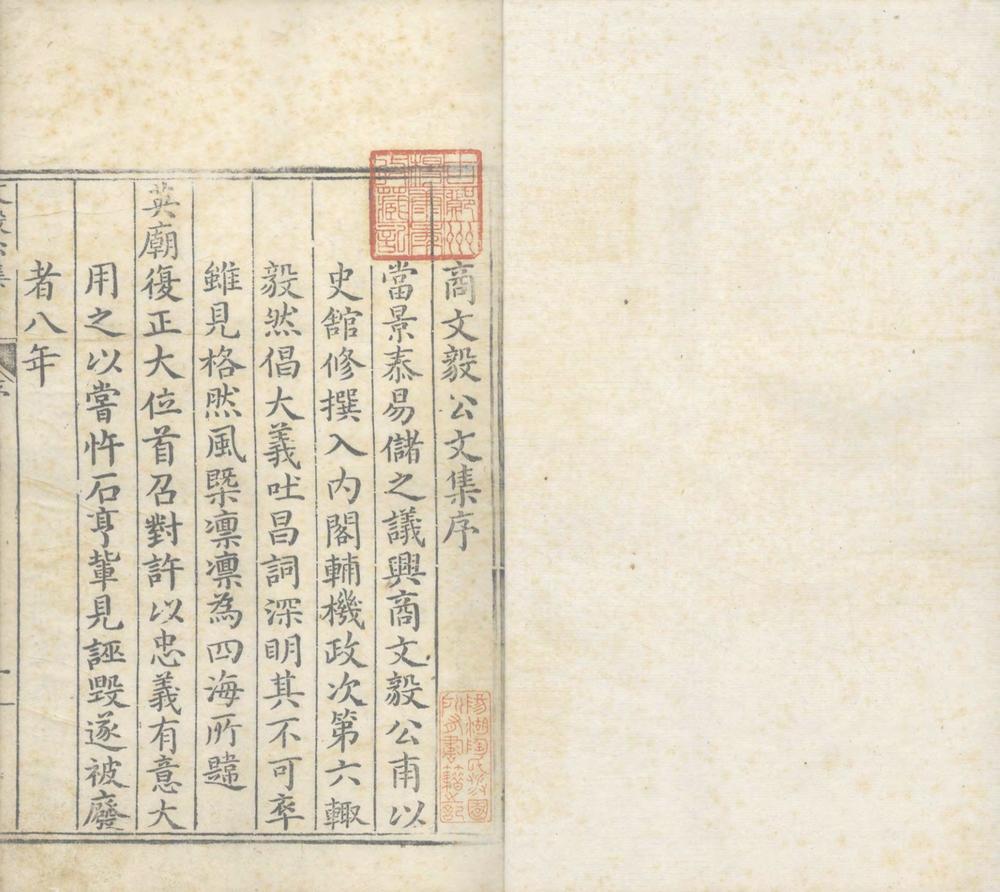 商文毅公文集序
當景泰易儲之議興商文毅公甫以
史舘修撰入内閣輔機政次第六輙
毅然倡大義吐昌詞深明其不可卒
雖見格然風槩凛凛為四海所韙
英廟復正大位首召對許以忠義有意大
用之以嘗忤石亨輩見誣毀遂被廢
者八年
陽湖陶氏涉園
所有書籍之記